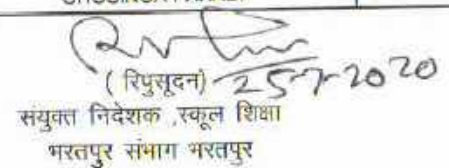 (रिपुसूदन) 25-7-2020
संयुक्त निदेशक ,स्कूल शिक्षा
भरतपुर संभाग भरतपुर